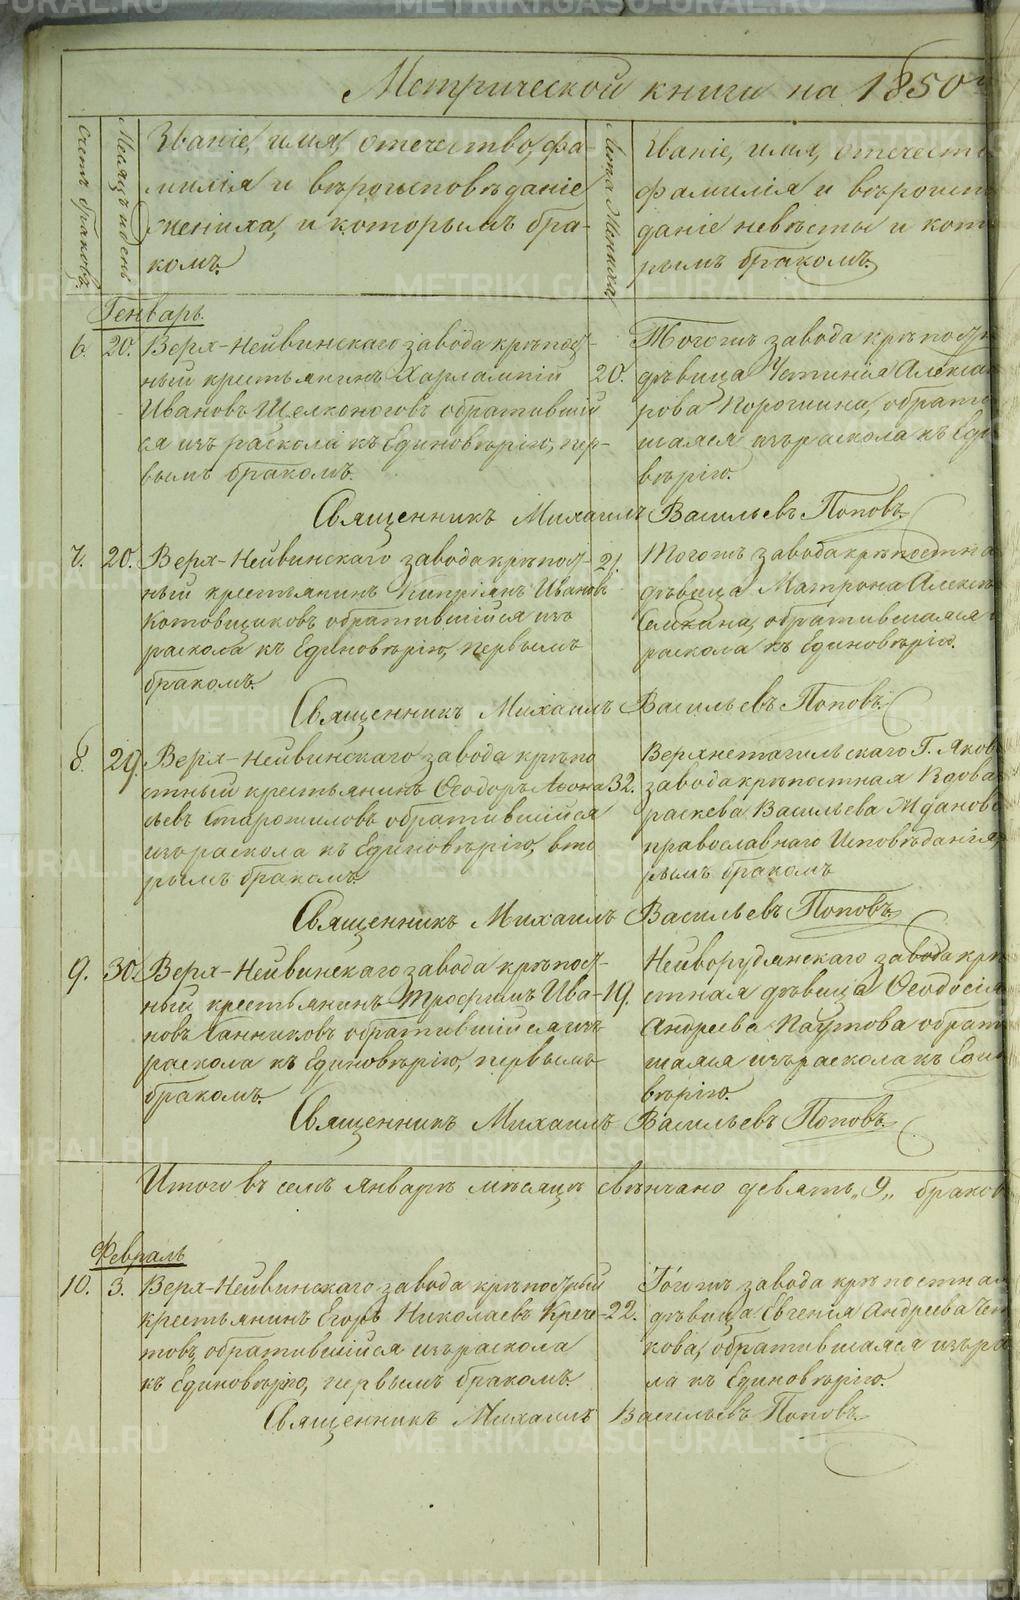 Метрической книги на 1850
Счетъ браковъ.
Мѣсяцъ и день
Званіе, имя, отечество, фа-
милія и вѣроисповѣданіе
жениха, и которымъ бра-
комъ.
Лѣта жениха
Званіе, имя, отечест
фамилія и вѣроисп
даніе невѣсты и кот
рымъ бракомъ.
Генварь.
6. 20. Верх-Нейвинскаго завода крѣпост-
ный крестьянинъ Харлампій
Ивановъ Щелконоговъ обратившій
ся изъ раскола къ Единовѣрію, пер-
вымъ бракомъ.
20.
Тогожъ завода крѣпостн
дѣвица Устинія Алекса
рова Порошина, обрати
шаяся изъ раскола къ Еди
вѣрію.
Священникъ Михаилъ Васильевъ Поповъ.
7. 20. Верх-Нейвинскаго завода крѣпост-
ный крестьянинъ Кипріянъ Ивановъ
Котовщиковъ обратившійся изъ
раскола къ Единовѣрію, первымъ
бракомъ.
21.
Тогожъ завода крѣпостна
дѣвица Матрона Алексѣ
обратившаяся
раскола къ Единовѣрію.
Священникъ Михаилъ Васильевъ Поповъ
8. 29. Верх-Нейвинскаго завода крѣпо
стный крестьянинъ Ѳеодоръ Аѳона
сьевъ Старожиловъ обратившійся
изъ раскола къ Единовѣрію, вто
рымъ бракомъ.
32.
Верхнетагильскаго Г. Яков
завода крѣпостная Вдова
раскева Васильева Жданов
православнаго Исповѣданія
рымъ бракомъ
Священникъ Михаилъ Васильевъ Поповъ
9. 30. Верх-Нейвинскаго завода крѣпост-
ный крестьянинъ Трофимъ Ива-
новъ Санниковъ обратившійся изъ
раскола къ Единовѣрію, первымъ
бракомъ.
19.
Нейворудянскаго завода крѣ
стная дѣвица Ѳеодосія
Андреева Паутова обрат
шаяся изъ раскола къ Еди
вѣрію.
Священникъ Михаилъ Васильевъ Поповъ.
Итого въ семъ январѣ мѣсяцѣ свѣнчано девять „9„ браков
Февраль
10. 3. Верх-Нейвинскаго завода крѣпостный
крестьянинъ Егоръ Николаевъ Крече-
товъ обратившійся изъ раскола
къ Единовѣрію, первымъ бракомъ.
22.
Тогожъ завода крѣпостная
дѣвица Евгенія Андреева
кова, обратившаяся изъ ра
ла къ Единовѣрію.
Священникъ Михаилъ Васильевъ Поповъ
METRIKI.GASO-URAL.RU